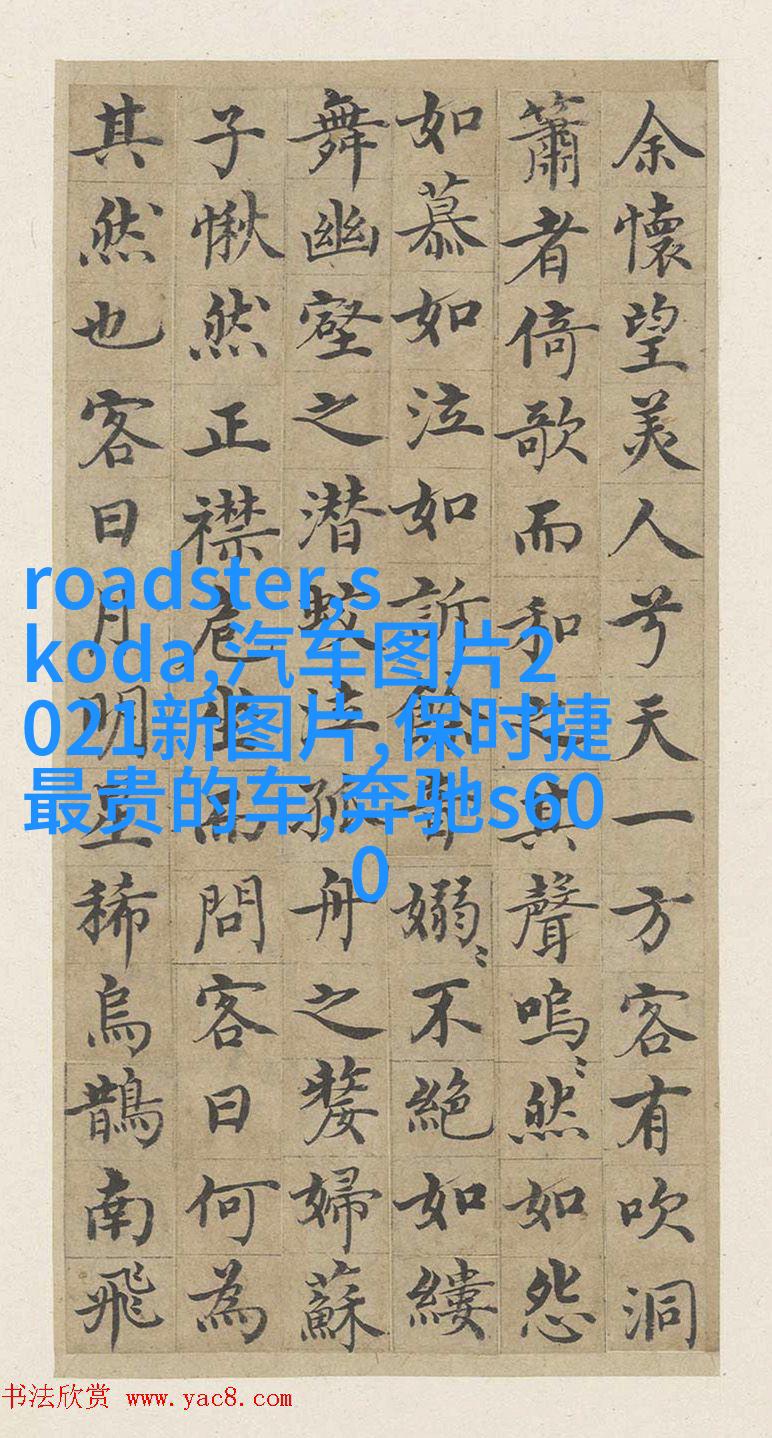 余懷望美人兮天一方客有吹洞
簫者倚歌而和之其聲嗚〻然如怨
如慕如泣如訴餘音嫋〻不絶如縷
舞幽壑之潜蛟泣孤舟之嫠婦蘇
子愀然正襟危坐而問客曰何為
其然也客曰月明星稀烏鵲南飛
roadster,s
koda,汽车图片2
021新图片,保时捷
最贵的车,奔驰s60
0
书法欣赏 www.yac8.com